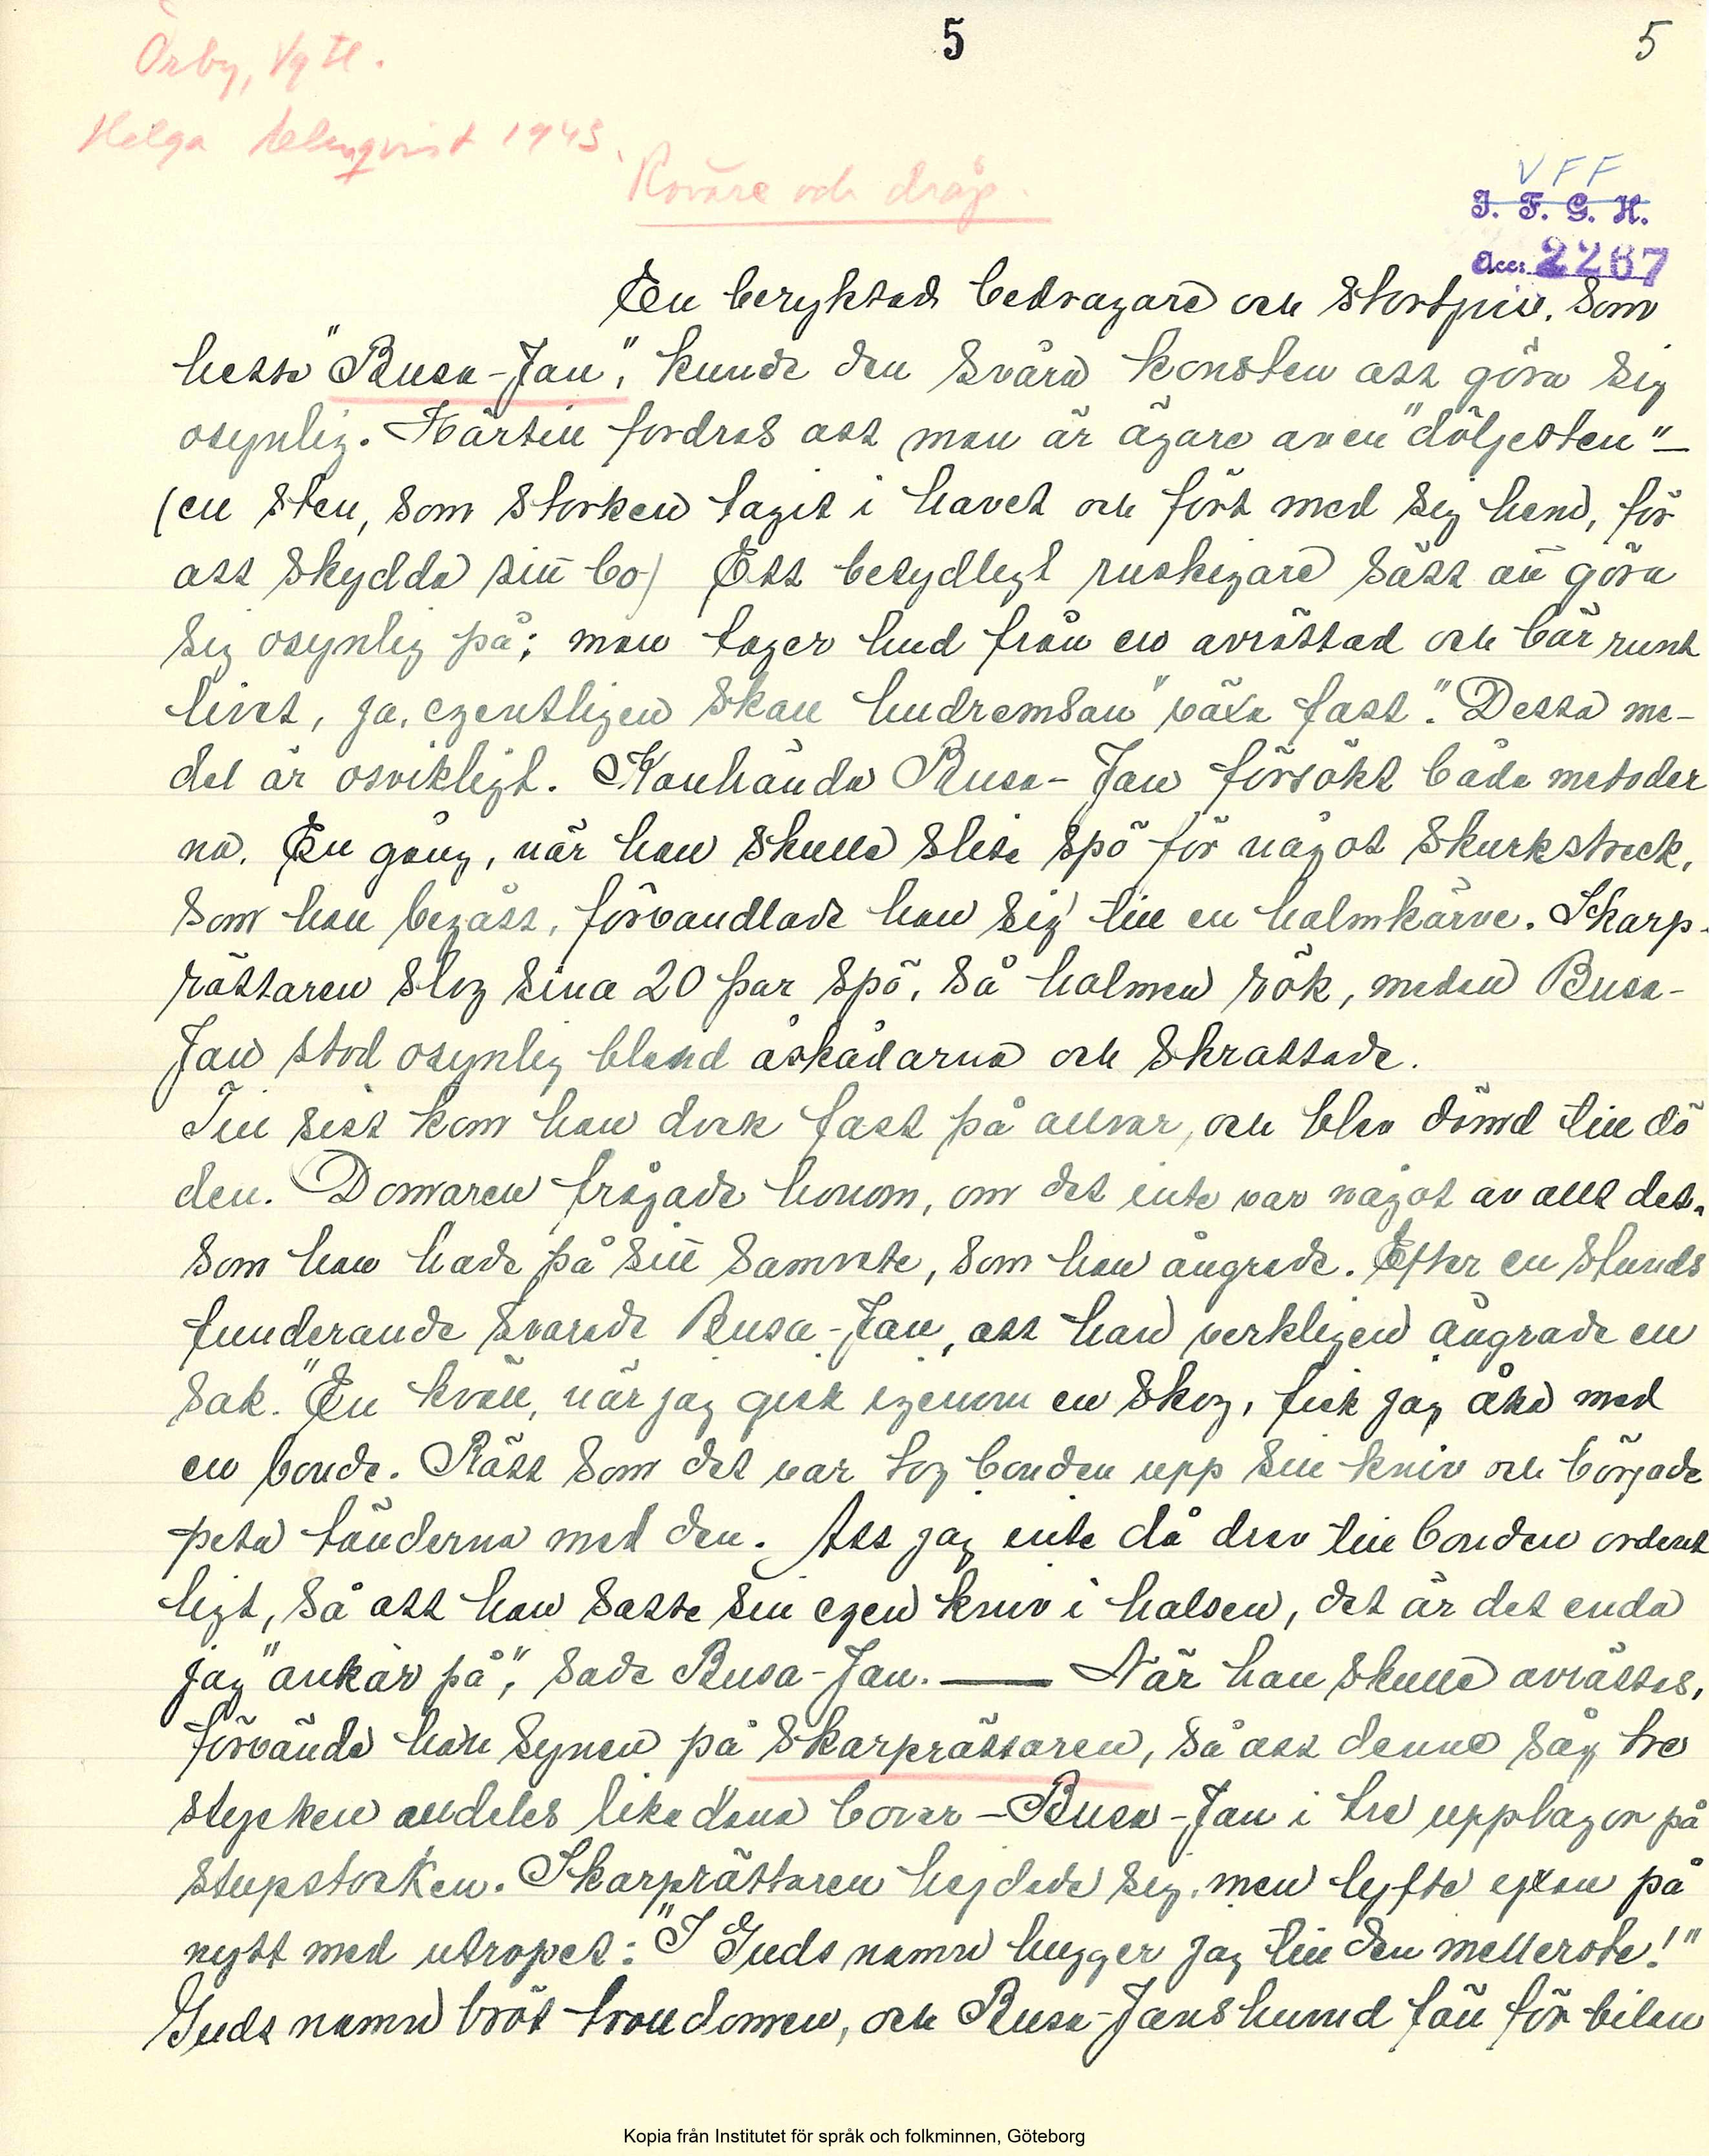 5
5
Örby, Vgtl.
Helga Almqvist 1943.
Rövare och dråp.
VFF
I. F. G. H.
Acc: 2287
En beryktad bedragare och stortjuv, som
hette "Busa-Jan", kunde den svåra konsten att göra sig
osynlig. Härtill fordras att man är ägare av en "döljesten" –
(en sten, som storken tagit i havet och fört med sig hem, för
att skydda sitt bo) Ett betydligt ruskigare sätt att göra
sig osynlig på: man tager hud från en avrättad och bär runt
livet, ja, egentligen skall hudremsan "växa fast". Dessa me-
del är osvikligt. Kanhända Busa-Jan försökt båda metoder
na. En gång, när han skulle slita spö för något skurkstreck,
som han begått, förvandlade han sig till en halmkärve. Skarp-
rättaren slog sina 20 par spö, så halmen rök, medan Busa-
Jan stod osynlig bland åskådarna och skrattade.
Till sist kom han dock fast på allvar, och blev dömd till dö
den. Domaren frågade honom, om det inte var något av allt det,
som han hade på sitt samvete, som han ångrade. Efter en stunds
funderande svarade Busa-Jan, att han verkligen ångrade en
sak. "En kväll, när jag gick igenom en skog, fick jag åka med
en bonde. Rätt som det var tog bonden upp sin kniv och började
peta tänderna med den. Att jag inte då drev till bonden ordent
ligt, så att han satte sin egen kniv i halsen, det är det enda
jag "ankar på", sade Busa-Jan. — När han skulle avrättas,
förvände han synen på skarprättaren, så att denne såg tre
stycken alldeles likadana bovar – Busa-Jan i tre upplagor på
stupstocken. Skarprättaren hejdade sig, men lyfte yxan på
nytt med utropet: "I Guds namn hugger jag till den mellerste!"
Guds namn bröt trolldomen, och Busa-Jans huvud föll för bilan
Kopia från Institutet för språk och folkminnen, Göteborg